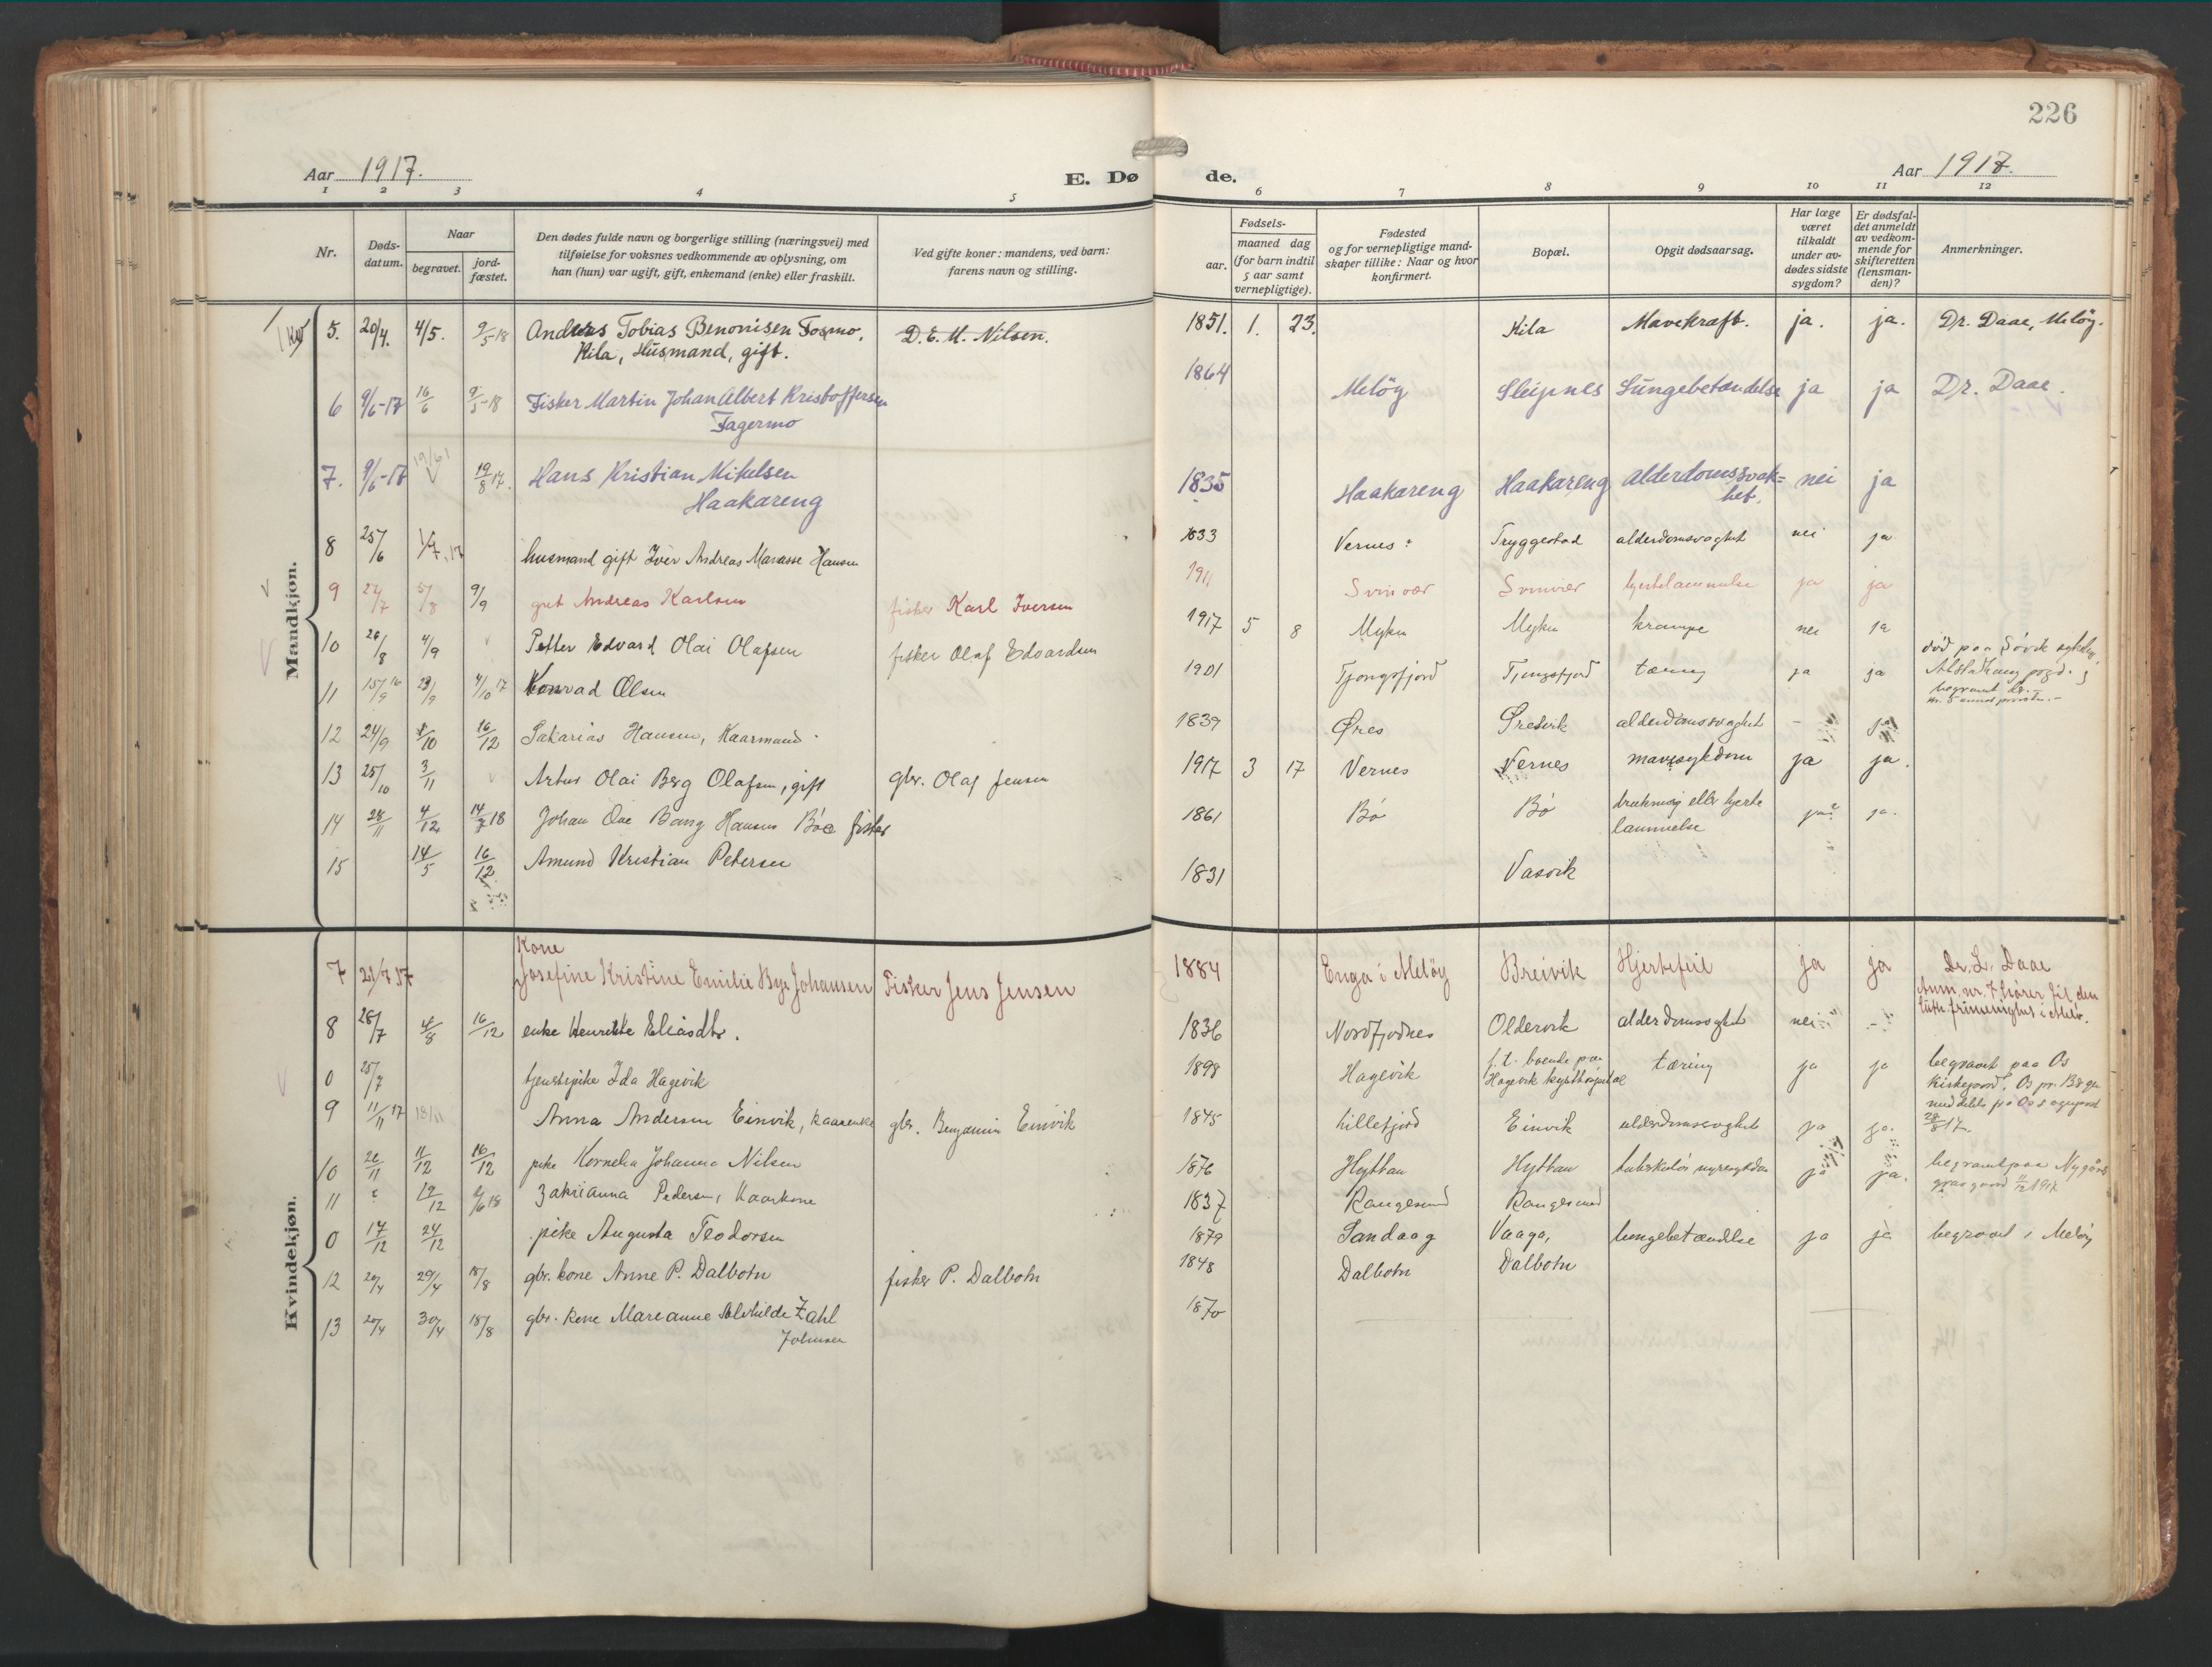 226
Aar 1917.
E. Dø
de.
Aar 1917.
1 2 3 4 5 6 7 8 9 10 11 12
Nr.
Døds-
datum.
Naar
begravet.
jord-
fæstet.
Den dødes fulde navn og borgerlige stilling (næringsvei) med
tilføielse for voksnes vedkommende av oplysning, om
han (hun) var ugift, gift, enkemand (enke) eller fraskilt.
Ved gifte koner: mandens, ved barn:
farens navn og stilling.
Fødsels-
aar.
maaned dag
(for barn indtil
5 aar samt
vernepligtige).
Fødested
og for vernepligtige mand-
skaper tillike: Naar og hvor
konfirmert.
Bopæl.
Opgit dødsaarsag.
Har læge
været
tilkaldt
under av-
dødes sidste
sygdom?
Er dødsfal-
det anmeldt
av vedkom-
mende for
skifteretten
(lensman-
den)?
Anmerkninger.
Mandkjøn.
5. 20/4. 4/5. 9/5-18 Andreas Tobias Benonisen Fosmo, D. E. M. Nilsen. 1851. 1. 23. Kila Mavekraft. ja. ja. Dr. Daae, Meløy.
Kila, Husmand, gift.
6 9/6-17 16/6 9/5-18 Fisker Martin Johan Albert Kristoffersen 1864 Meløy Sleipnes Lungebetændelse ja ja Dr. Daae.
Fagermo
7. 9/6-17 19/8 17. Hans Kristian Mikelsen 1835 Haakareng Haakareng Alderdomssvak=
Haakareng het. nei ja
8 25/6 1/7 17 husmand gift Iver Andreas Manasse Hansen 1833 Vernes: Tryggestad alderdomsvaghet nei ja
9 27/7 5/8 9/9 gut Andreas Karlsen fisker Karl Iversen 1911 Svinvær Svinvær hjertelammelse ja ja
10 26/8 4/9 Petter Edvard Olai Olafsen fisker Olaf Edvardsen 1917 5 8 Myken Myken krampe nei ja
11 15/9 23/9 4/10 17 Konrad Olsen 1901 Tjongsfjord Tjongsfjord tæring ja ja død paa Søvik
12 24/9 8/10 16/12 Sakarias Hansen, Kaarmand 1839 Øres Øresvik alderdomssvaghet - ja
13 25/10 3/11 Artur Olai Berg Olafsen, gift gbr. Olaf Jensen 1917 3 17 Vernes Vernes mavesykdom ja ja.
14 28/11 4/12 14/7 18 Johan Ove Bang Hansen Bøe fisker 1861 Bø Bø drukning eller hjerte
lammelse ja? ja.
15 14/5 16/12 Amund Kristian Petersen 1831 Vasvik
Kvindekjøn.
Kone
7 21/7 17 Josefine Kristine Emilie Bye Johansen Fisker Jens Jensen 1884 Enga i Meløy Breivik Hjertefeil ja ja Dr. L. Daae
Anm. nr. 7 hører til den
luth. frimenighet i Meløy.
8 28/7 4/8 16/12 enke Henrikke Eliasdtr. 1836 Nordfjordnes Oldervik alderdomsvaghet nei -
0 25/7 tjenestepike Ida Hagevik 1898 Hagevik f. t. boende paa
Hagevik kysthospital tæring ja ja begravet paa Os
kirkegaard, Os pr. Bergen
28/8 17.
9 11/11 17 18/11 Anna Andersen Einvik, kaarenke gbr. Benjamin Einvik 1845 Lillefjord Einvik alderdomsvaghet ja ja.
10 26/11 11/12 16/12 pike Kornelia Johanna Nilsen 1876 Hyttan Hyttan tuberkuløs nyresykdom ja ja. begravet paa Nygaard
gravgaard 11/12 1917
11 ? 19/12 2/6 18 Zakrianna Pedersen, Kaarkone 1837 Rangsund Rangsund
0 17/12 24/12 pike Augusta Teodorsen 1879 Sandaag Vaaga, lungebetændelse ja ja begravet i Meløy
12 20/4 29/4 18/8 gbr. kone Anne P. Dalbotn fisker P. Dalbotn 1848 Dalbotn Dalbotn
13 20/4 30/4 18/8 gbr. kone Mareanne Zahl 1870
Johnsen